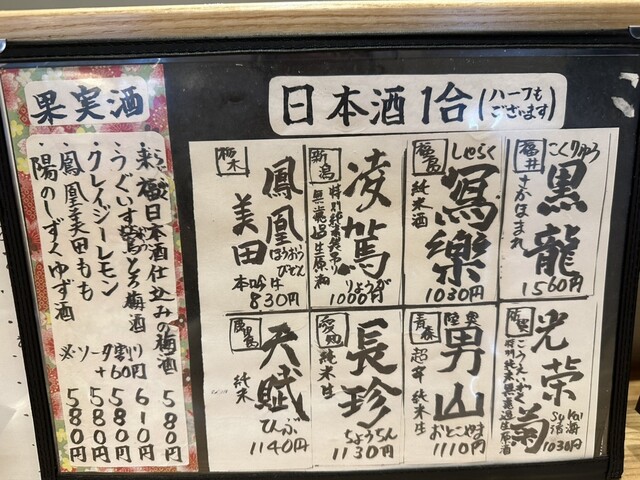 日本酒1合(ハーフもございます)
福井
こくりゅう
黒龍
さかほまれ
1560円
福島
しゃらく
寫樂
純米酒
1030円
新潟
凌駕
りょうが
無濾過生原酒
1000円
栃木
鳳凰美田
ほうおうびでん
本吟生
830円
光栄菊
こうえいぎく
特別純米無濾過生原酒
1030円
青森
陸奥男山
おとこやま
超辛純米生
1110円
愛知
長珍
ちょうちん
純米生
1130円
鹿児島
天賦
てんぶ
純米
1140円
果実酒
来福日本酒仕込みの梅酒
580円
うぐいすとろ梅酒
610円
クレイジーレモン
580円
鳳凰美田もも
580円
陽のしずくゆず酒
580円
※ソーダ割り+60円